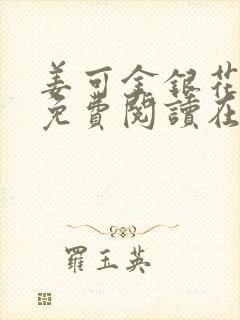 姜可金銀花
免費閱讀在
羅玉英